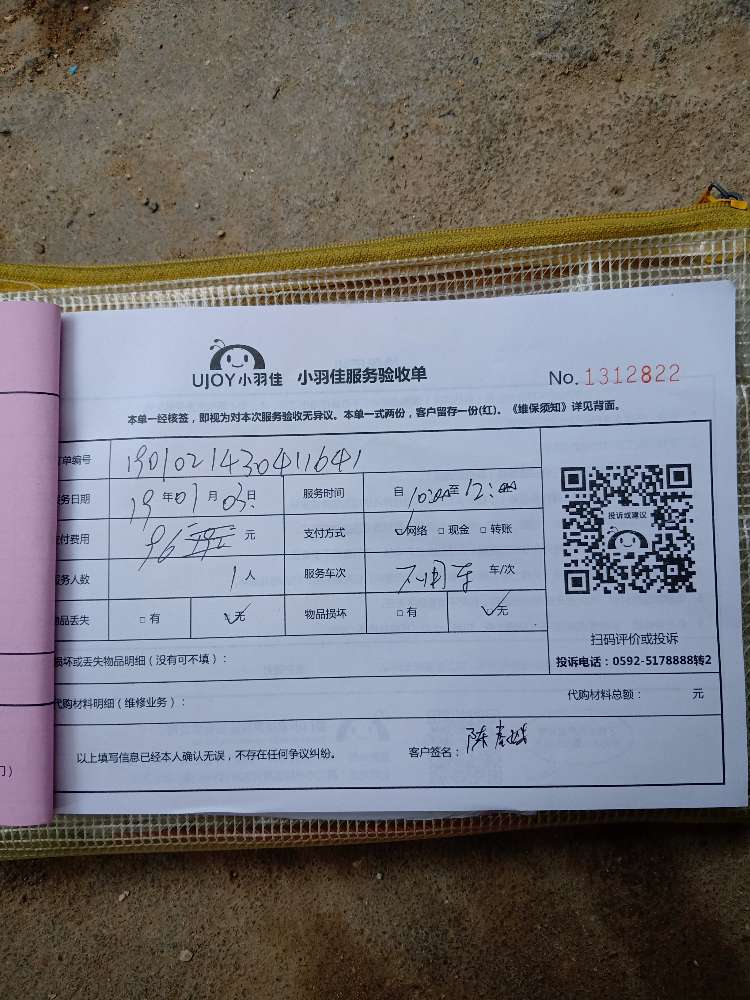 UJOY小羽佳 小羽佳服务验收单 No. 1312822
本单一经核签，即视为对本次服务验收无异议。本单一式两份，客户留存一份(红)。《维保须知》详见背面。
单编号 1901021430411641
务日期 19年01月03日 服务时间 自10:00至12:00
付费用 96 元 支付方式 ☑网络 □现金 □转账
务人数 1人 服务车次 不用车 车/次
品丢失 □有 ☑无 物品损坏 □有 ☑无
投诉或建议
扫码评价或投诉
投诉电话：0592-5178888转2
损坏或丢失物品明细（没有可不填）：
代购材料明细（维修业务）： 代购材料总额： 元
以上填写信息已经本人确认无误，不存在任何争议纠纷。 客户签名：陈